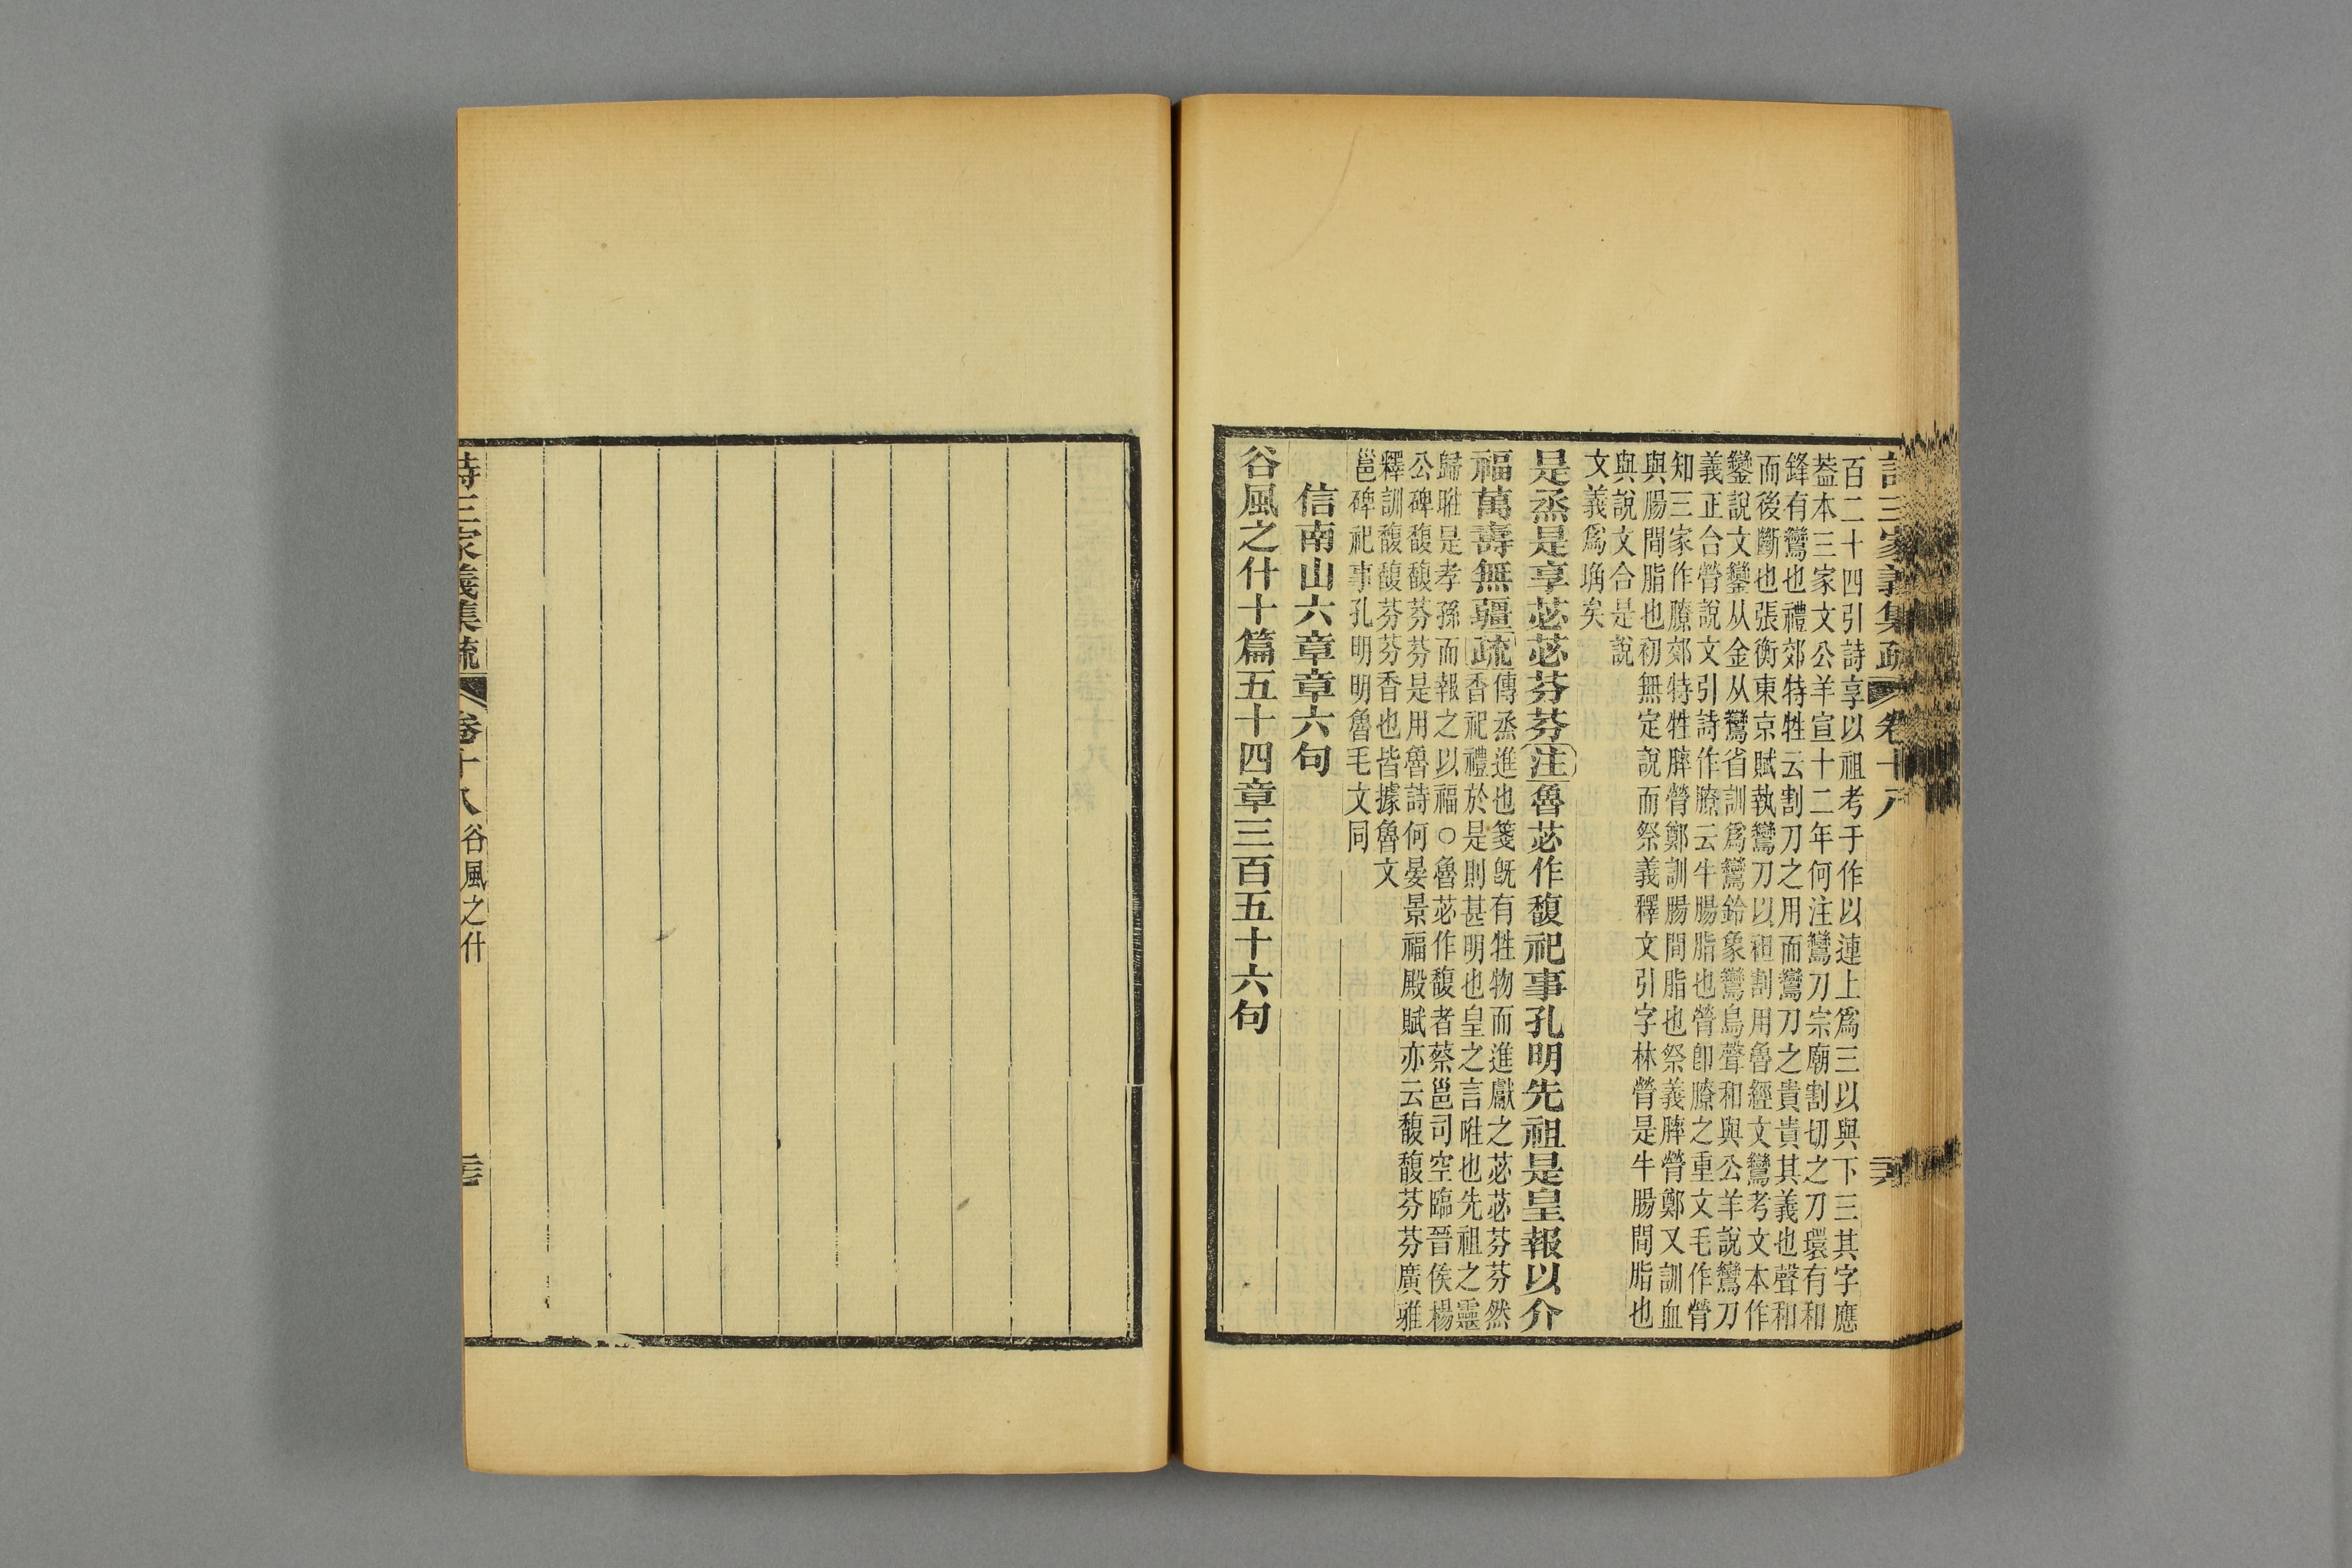 詩三家義集疏 卷十八
百二十四引詩享以祖考于作以連上爲三以與下三其字應
蓋本三家文公羊宣十二年何注鸞刀宗廟割切之刀環有和
鋒有鸞也禮郊特牲云割刀之用而鸞刀之貴貴其義也聲和
而後斷也張衡東京賦執鸞刀以袒割用魯經文鸞考文本作
鑾說文鑾从金从鸞省訓爲鸞鈴象鸞鳥聲和與公羊說鸞刀
義正合膋說文引詩作膫云牛腸脂也膋卽膫之重文毛作膋
知三家作膫郊特牲膟膋鄭訓腸間脂也祭義膟膋鄭又訓血
與腸間脂也初無定說而祭義釋文引字林膋是牛腸間脂也
與說文合是說
文義爲埆矣
是烝是享苾苾芬芬注魯苾作馥祀事孔明先祖是皇報以介
福萬壽無疆疏傳烝進也箋旣有牲物而進獻之苾苾芬芬然
香祀禮於是則甚明也皇之言暀也先祖之靈
歸暀是孝孫而報之以福○魯苾作馥者蔡邕司空臨晉侯楊
公碑馥馥芬芬是用魯詩何晏景福殿賦亦云馥馥芬芬廣雅
釋訓馥馥芬芬香也皆據魯文
邕碑祀事孔明明魯毛文同
信南山六章章六句
谷風之什十篇五十四章三百五十六句
詩三家義集疏 卷十八 谷風之什